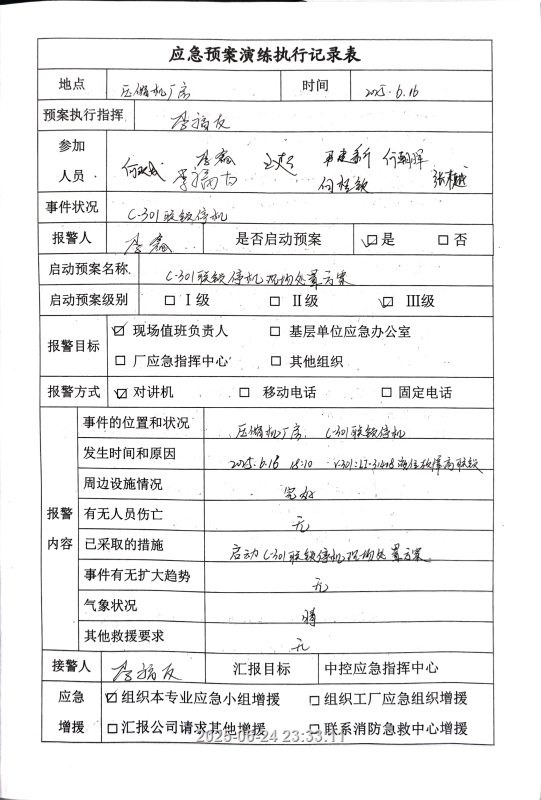 应急预案演练执行记录表
地点 压缩机厂房 时间 2025.6.16
预案执行指挥 李福友
参加
人员
事件状况 C-301联锁停机
报警人 李鑫 是否启动预案 ☑是 □否
启动预案名称 C-301联锁停机现场处置方案
启动预案级别 □Ⅰ级 □Ⅱ级 ☑Ⅲ级
报警目标 ☑现场值班负责人 □基层单位应急办公室
□厂应急指挥中心 □其他组织
报警方式 ☑对讲机 □移动电话 □固定电话
报警内容
事件的位置和状况 压缩机厂房 C-301联锁停机
发生时间和原因 2025.6.16 18:10 V-301:LT-31408液位故障高联锁
周边设施情况 完好
有无人员伤亡 无
已采取的措施 启动C-301联锁停机现场处置方案
事件有无扩大趋势 无
气象状况 晴
其他救援要求 无
接警人 李福友 汇报目标 中控应急指挥中心
应急 ☑组织本专业应急小组增援 □组织工厂应急组织增援
增援 □汇报公司请求其他增援 □联系消防急救中心增援
2025-06-24 23:33:11